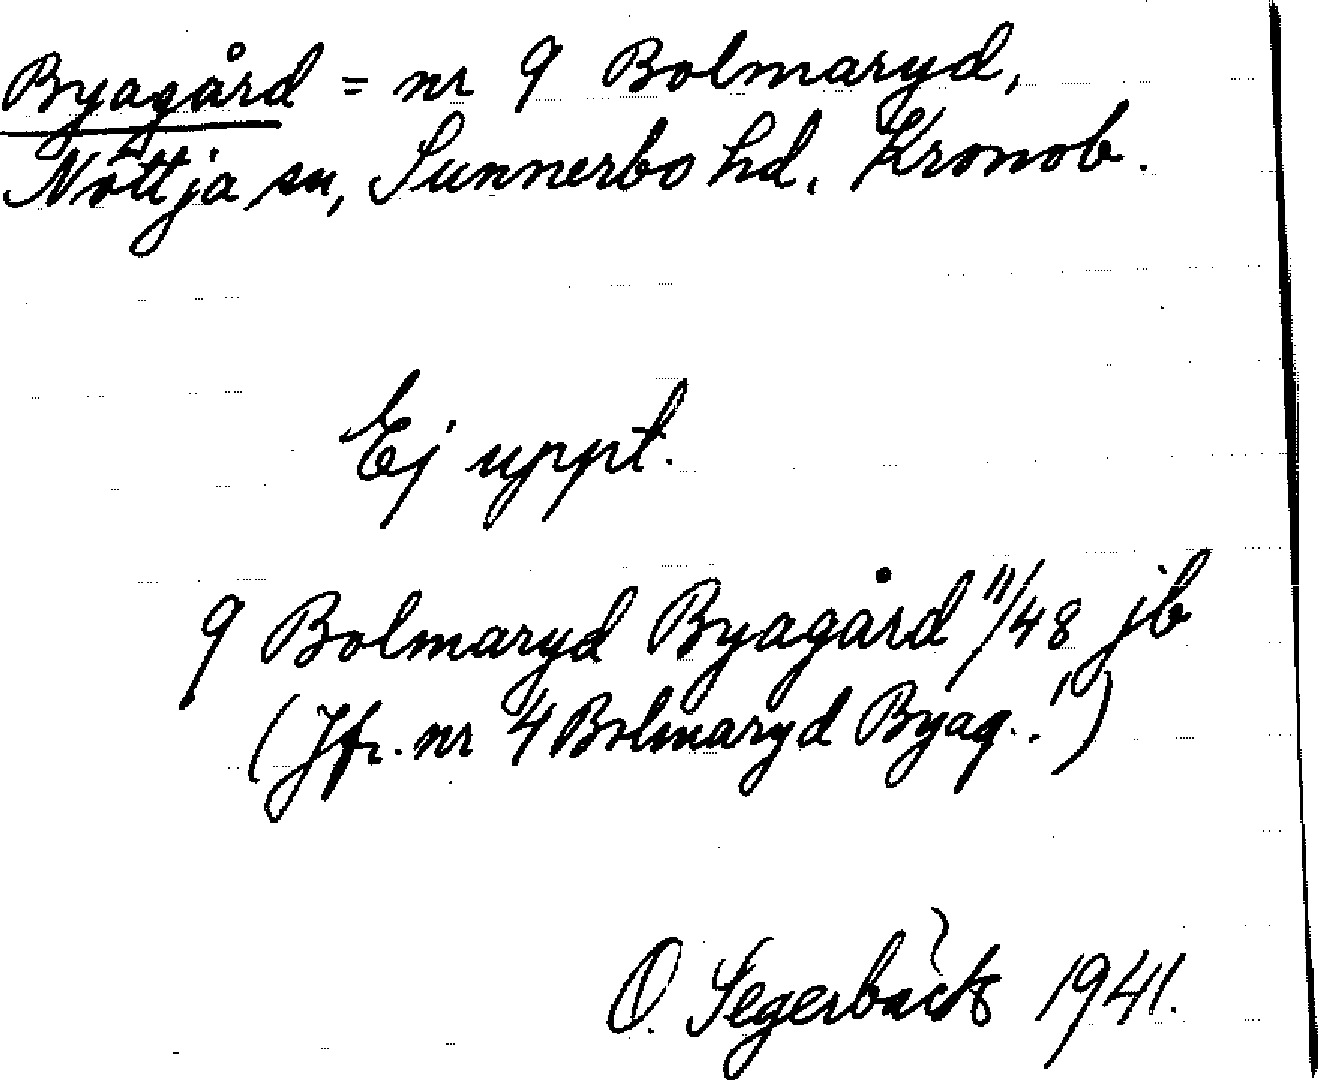 Byagård = nr 9 Bolmaryd,
Nöttja sn, Sunnerbo hd, Kronob.
Ej uppt.
9 Bolmaryd Byagård 11/48 jb
(Jfr. nr 4 Bolmaryd Byag..!)
O. Segerbäck 1941.